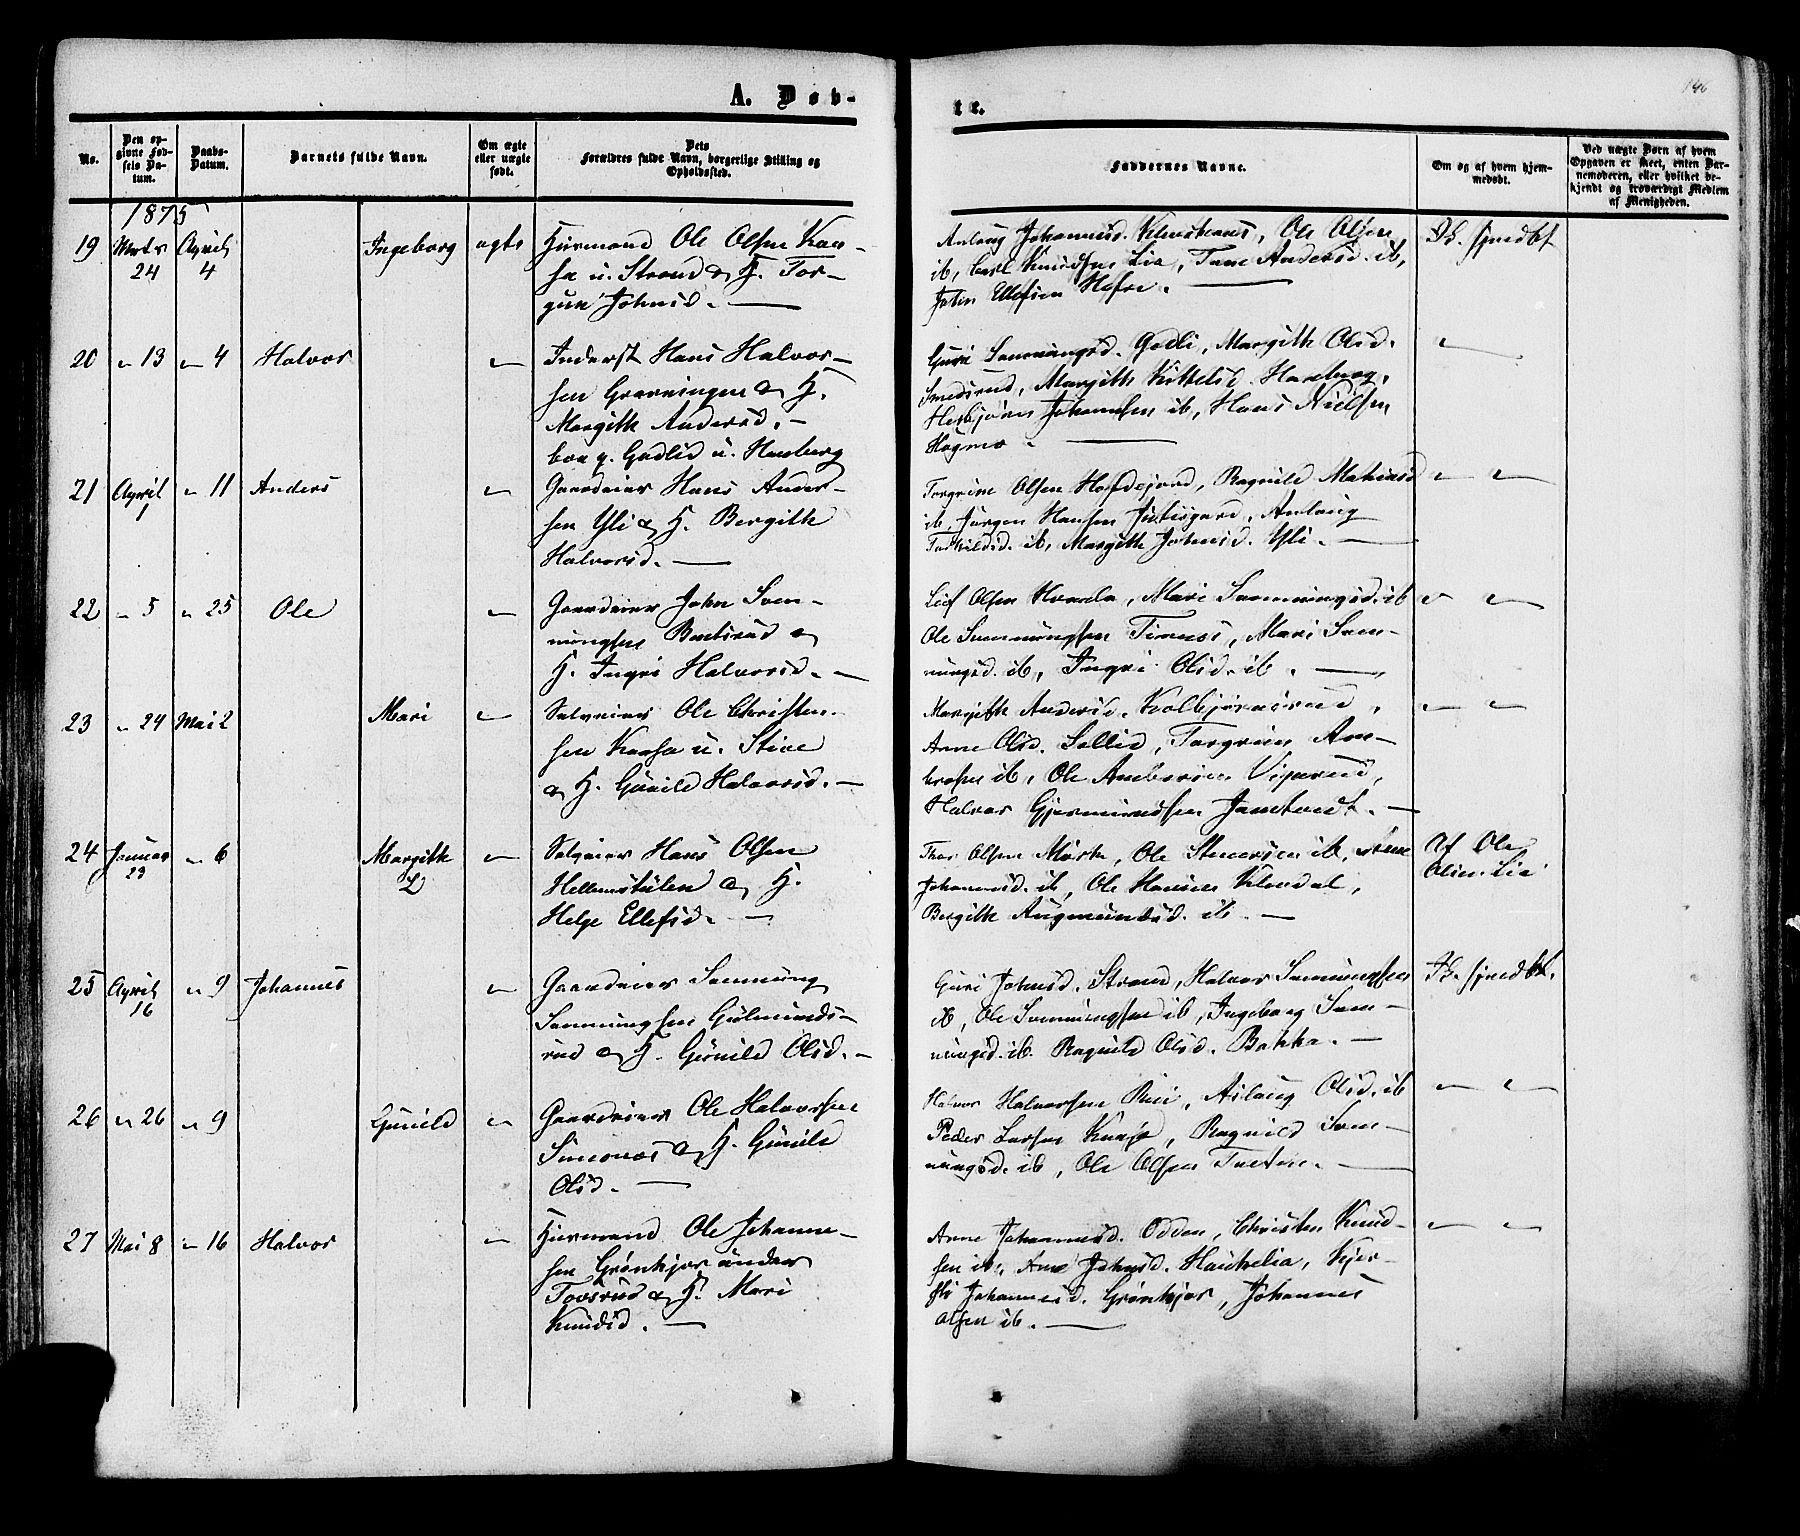 A. Døb-
te.
146
No.
Den op-
givne Fød-
sels Da-
tum.
Daabs-
Datum.
Barnets fulde Navn.
Om ægte
eller uægte
født.
Dets
Forældres fulde Navn, borgerlige Stilling og
Opholdssted.
Faddernes Navne.
Om og af hvem hjem-
medøbt.
Ved uægte Børn af hvem
Opgaven er skeet, enten Bar-
nemoderen, eller hvilket be-
kjendt og troværdigt Medlem
af Menigheden.
1875
19 Marts 24 April 4 Ingeborg ægte
Huusmand Ole Olsen Kaa-
sa u. Strand & H. Tor-
gun Johnsd. —
Aslaug Johannesd. Ole Olsen
ib, Carl Knudsen Lia, Tone Andersd. ib,
John Ellefsen Hofre. —
Th. hjmdbt
20 " 13 " 4 Halvor "
Inderst Hans Halvor-
sen Grønningen & H.
Margith Andersd. —
boe p. Gudlid u. Hauberg
Guri Sveinungsd. Godli, Margith Olsd.
Smedsrud, Margith Kittelsd. Hauberg,
Herbjørn Johannesen ib, Hans Nielsen
Hagmo. —
"
21 April 1 " 11 Anders "
Gaardeier Hans Ander-
sen Yli & H. Bergith
Halvorsd. —
Torgrim Olsen Hofdejord, Ragnild Mathiasd
ib, Jørgen Hansen Aslaug
ib, Margith Johnsd. Yli. —
" "
22 " 5 " 25 Ole "
Gaardeier John Sven-
nungsen
H. Ingri Halvorsd. —
Leif Olsen Kvaale, Mari Svennungsd. ib
Ole Svennungsen Mari Sven-
nungsd. ib, Ingri Olsd. ib. —
" "
23 " 24 Mai 2 Mari "
Selveier Ole Christen-
sen Kaasa u. Stive
& H. Gunild Halvorsd. —
Margith Andersd. Kolbjørnsrud,
Anne Olsd. Sollid, Torgrim Am-
brosen ib, Ole Ambrosen
Halvor Gjermundsen Jamtvedt. —
" "
24 Januar 23 " 6 Margith L "
Selveier Hans Olsen
Hellemstulen & H.
Helge Ellefsd. —
Thor Olsen Ole Steenersen ib, Anne
Johannesd. ib, Ole Hansen
Bergith Augmundsd. ib. —
Af Ole
Olsen Lia
25 April 16 " 9 Johannes "
Gaardeier Svennung
Svennungsen Gulmunds-
rud & H. Gunild Olsd. —
Guri Johnsd. Strand, Halvor Svennungsen
ib, Ole Svennungsen ib, Ingeborg Sven-
nungsd. ib. Ragnild Olsd. Bakka. —
Th. hjmdbt.
26 " 26 " 9 Gunild "
Gaardeier Ole Halvorsen
Simones & H. Gunild
Olsd. —
Halvor Halvorsen Rui, Aslaug Olsd. ib
Peder Larsen Ragnild Sven-
nungsd. ib, Ole Olsen Tveten. —
" "
27 Mai 8 " 16 Halvor "
Huusmand Ole Johanne-
sen Grønkjær under
Tovsrud & H. Mari
Knudsd. —
Anne Johannesd. Odden, Christen Knud-
sen ib, Anne Johnsd. Haukelia, Kjer-
sti Johannesd. Grønkjær, Johannes
Olsen ib. —
" "